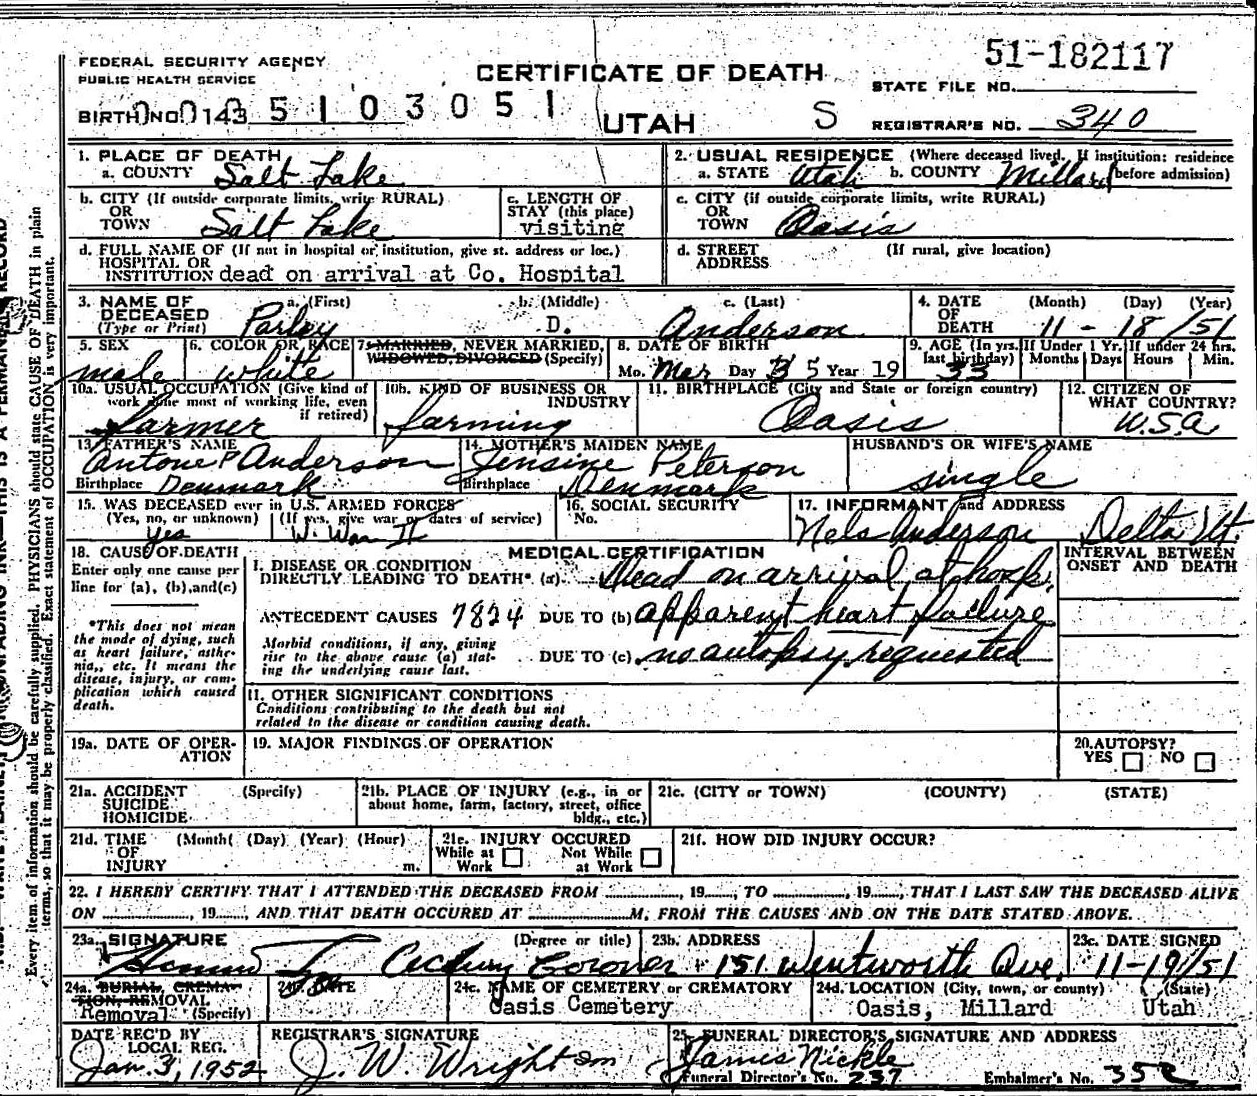 51-182117
FEDERAL SECURITY AGENCY
PUBLIC HEALTH SERVICE
CERTIFICATE OF DEATH
STATE FILE NO.
BIRTH NO. 0143 5 1 0 3 0 5 1
UTAH
S
REGISTRAR'S NO. 340
1. PLACE OF DEATH
a. COUNTY Salt Lake
2. USUAL RESIDENCE (Where deceased lived. If institution: residence before admission)
a. STATE Utah b. COUNTY Millard
b. CITY (If outside corporate limits, write RURAL)
OR
TOWN Salt Lake
c. LENGTH OF
STAY (this place)
visiting
c. CITY (if outside corporate limits, write RURAL)
OR
TOWN Oasis
d. FULL NAME OF (If not in hospital or institution, give st. address or loc.)
HOSPITAL OR
INSTITUTION dead on arrival at Co. Hospital
d. STREET
ADDRESS
(If rural, give location)
3. NAME OF
DECEASED
(Type or Print)
a. (First) b. (Middle) c. (Last)
Parley D. Anderson
4. DATE
OF
DEATH
(Month) (Day) (Year)
11 - 18/51
5. SEX
male
6. COLOR OR RACE
white
7. MARRIED, NEVER MARRIED,
WIDOWED, DIVORCED (Specify)
8. DATE OF BIRTH
Mo. Mar Day 5 Year 19
9. AGE (In yrs. last birthday)
33
If Under 1 Yr.
Months Days
If under 24 hrs.
Hours Min.
10a. USUAL OCCUPATION (Give kind of
work done most of working life, even
if retired)
farmer
10b. KIND OF BUSINESS OR
INDUSTRY
farming
11. BIRTHPLACE (City and State or foreign country)
Oasis
12. CITIZEN OF
WHAT COUNTRY?
U.S.A.
13. FATHER'S NAME
Antone P. Anderson
Birthplace Denmark
14. MOTHER'S MAIDEN NAME
Jensine Peterson
Birthplace Denmark
HUSBAND'S OR WIFE'S NAME
single
15. WAS DECEASED ever in U.S. ARMED FORCES
(Yes, no, or unknown) (If yes, give war or dates of service)
yes W. War II
16. SOCIAL SECURITY
No.
17. INFORMANT and ADDRESS
Nels Anderson Delta Ut.
18. CAUSE OF DEATH
Enter only one cause per
line for (a), (b), and (c)
*This does not mean
the mode of dying, such
as heart failure, asthe-
nia, etc. It means the
disease, injury, or com-
plication which caused
death.
MEDICAL CERTIFICATION
INTERVAL BETWEEN
ONSET AND DEATH
I. DISEASE OR CONDITION
DIRECTLY LEADING TO DEATH* (a) Dead on arrival at hosp.
ANTECEDENT CAUSES 7824 DUE TO (b) apparent heart failure
Morbid conditions, if any, giving
rise to the above cause (a) stat-
ing the underlying cause last.
DUE TO (c) no autopsy requested
II. OTHER SIGNIFICANT CONDITIONS
Conditions contributing to the death but not
related to the disease or condition causing death.
19a. DATE OF OPER-
ATION
19. MAJOR FINDINGS OF OPERATION
20. AUTOPSY?
YES NO
21a. ACCIDENT
SUICIDE
HOMICIDE
(Specify)
21b. PLACE OF INJURY (e.g., in or
about home, farm, factory, street, office
bldg., etc.)
21c. (CITY or TOWN) (COUNTY) (STATE)
21d. TIME
OF
INJURY
(Month) (Day) (Year) (Hour)
m.
21e. INJURY OCCURED
While at
Work
Not While
at Work
21f. HOW DID INJURY OCCUR?
22. I HEREBY CERTIFY THAT I ATTENDED THE DECEASED FROM , 19 , TO , 19 , THAT I LAST SAW THE DECEASED ALIVE
ON , 19 , AND THAT DEATH OCCURED AT M. FROM THE CAUSES AND ON THE DATE STATED ABOVE.
23a. SIGNATURE
(Degree or title)
Coroner
23b. ADDRESS
151 Wentworth Ave.
23c. DATE SIGNED
11-19/51
24a. BURIAL, CREMA-
TION, REMOVAL
Removal (Specify)
24b. DATE
24c. NAME OF CEMETERY or CREMATORY
Oasis Cemetery
24d. LOCATION (City, town, or county) (State)
Oasis, Millard Utah
DATE REC'D BY
LOCAL REG.
Jan. 3, 1952
REGISTRAR'S SIGNATURE
J. W. Wright
25. FUNERAL DIRECTOR'S SIGNATURE AND ADDRESS
James Nickle
Funeral Director's No. 237
Embalmer's No. 352
THIS IS A PERMANENT RECORD
Every item of information should be carefully supplied. PHYSICIANS should state CAUSE OF DEATH in plain
terms, so that it may be properly classified. Exact statement of OCCUPATION is very important.